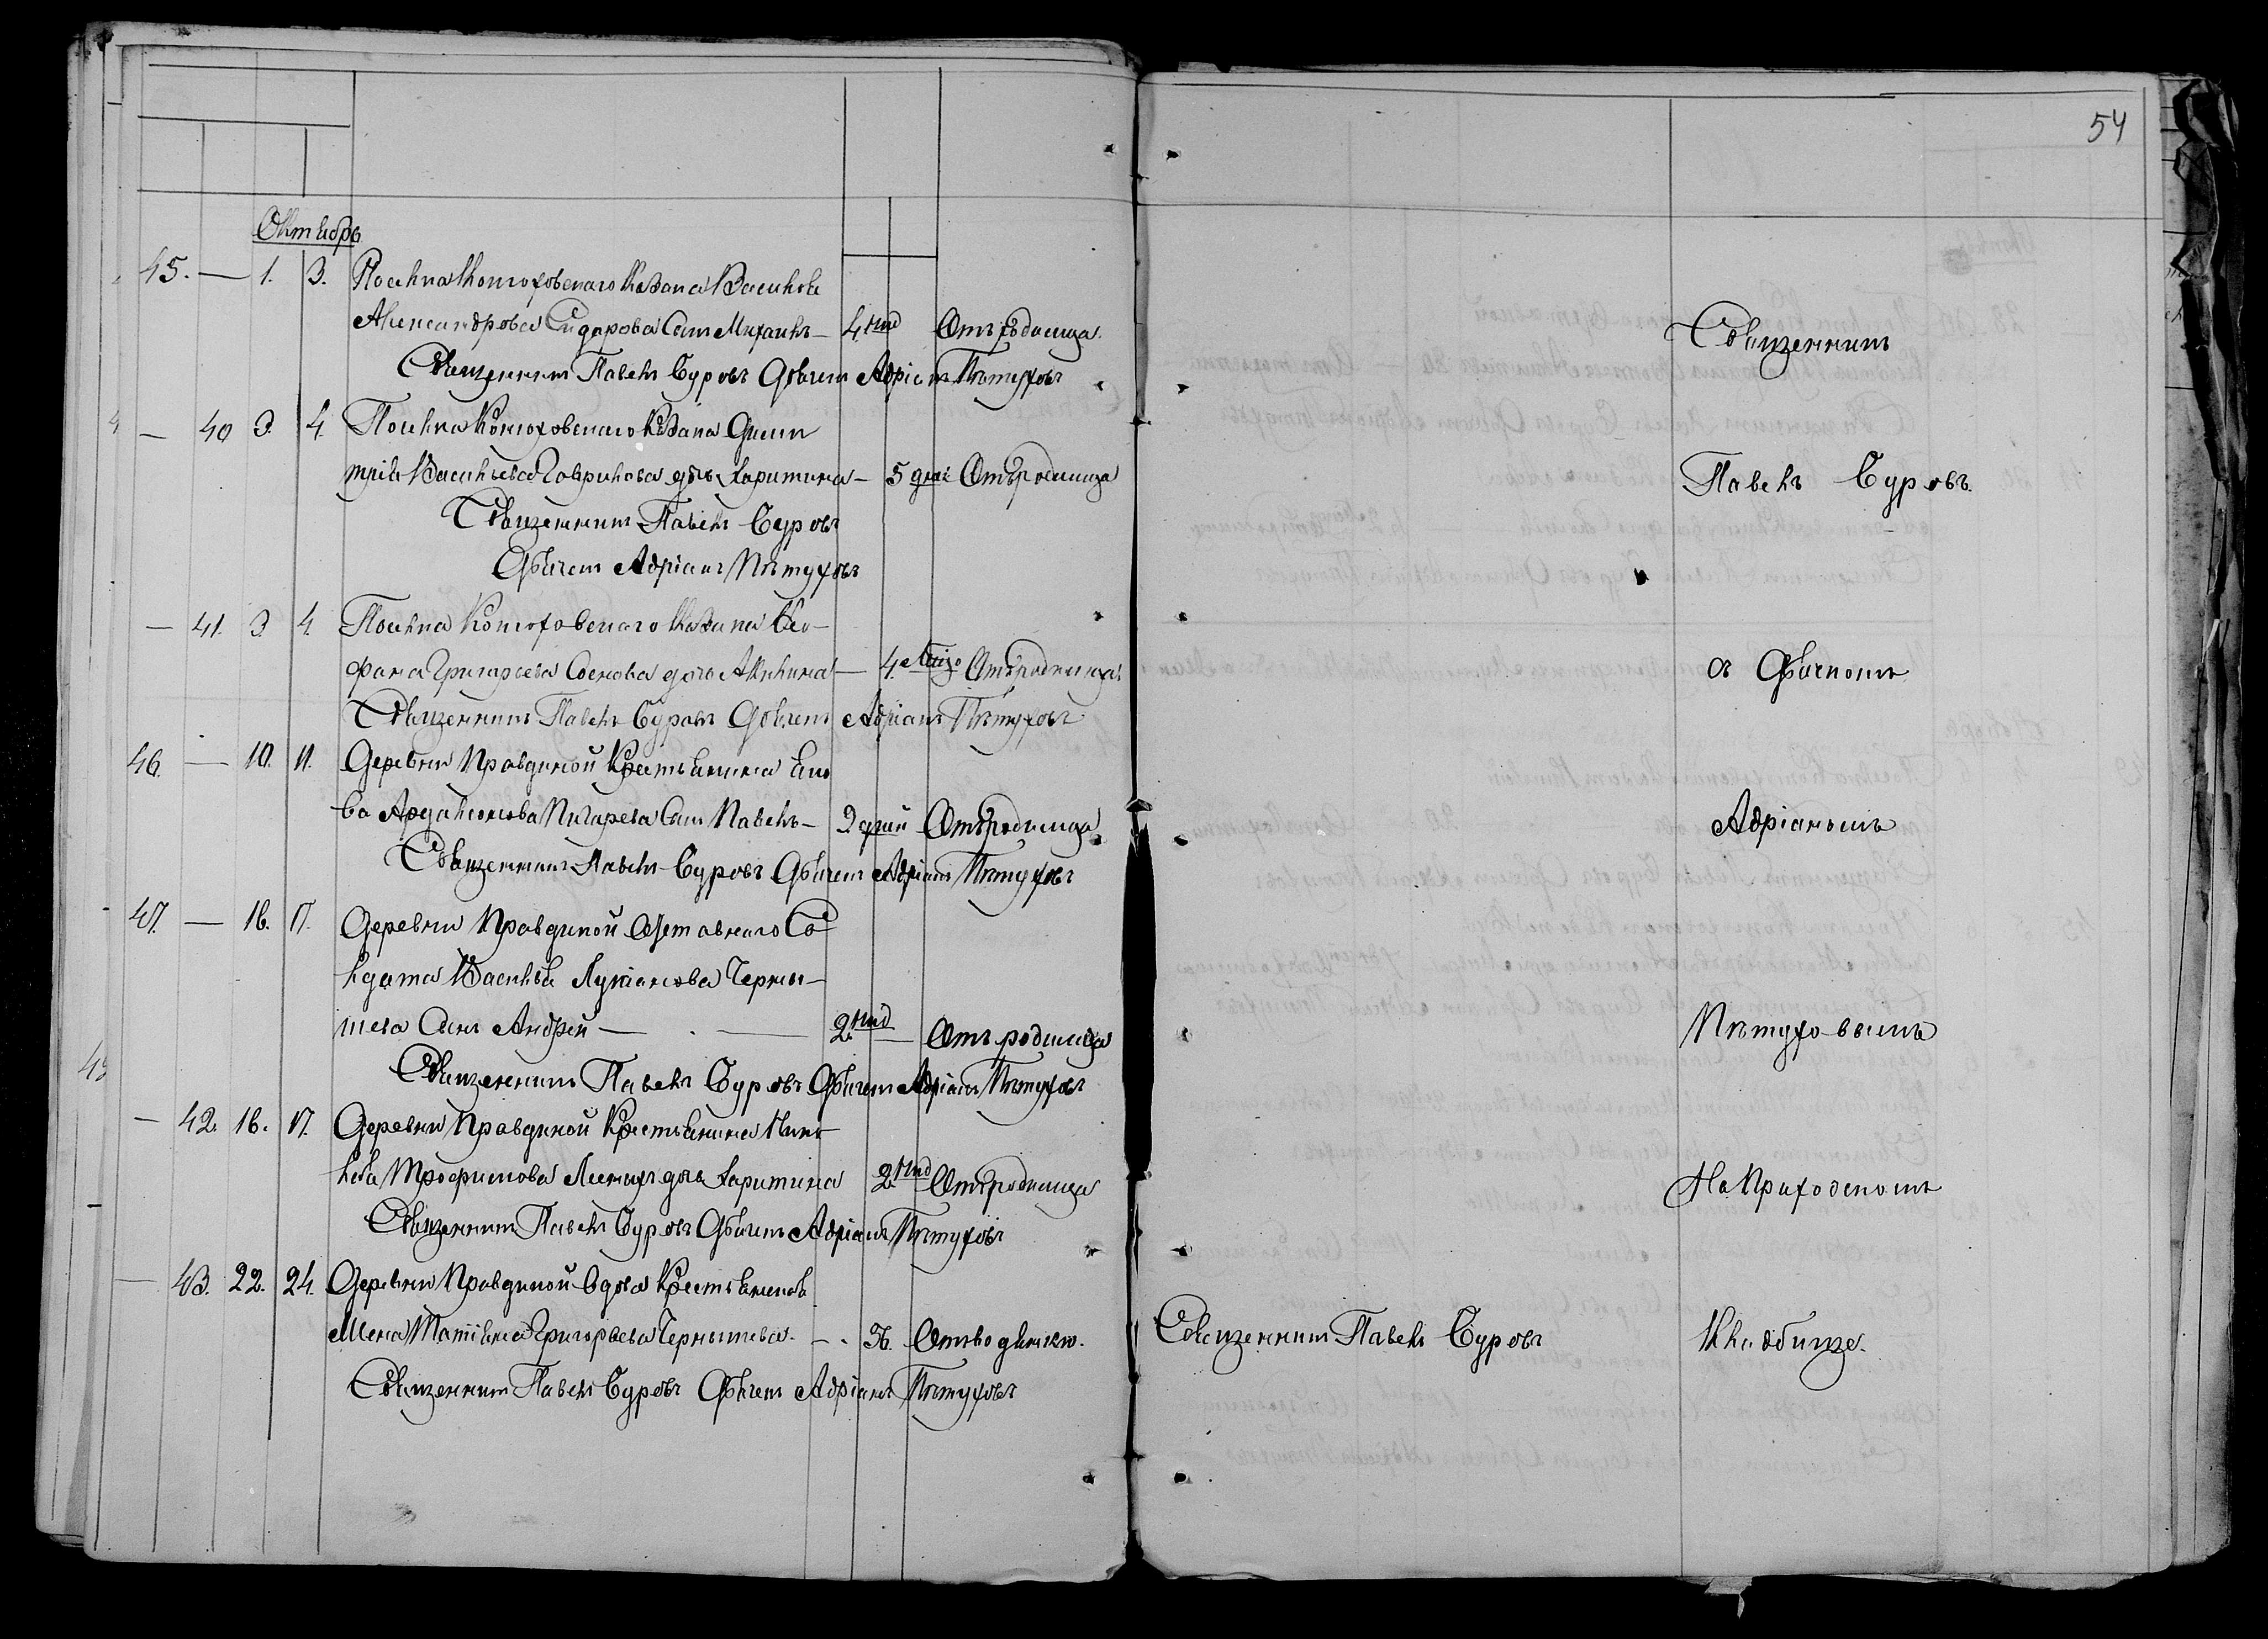 54
Октябрь
45. — 1. 3. Поселка Кочотовскаго Казака Василья
Александрова Сидарова Сынъ Михаилъ — 4. нед Отъ родимца.
Священникъ Павелъ Суровъ Дьячекъ Адріанъ Пѣтуховъ
— 40 3. 4. Поселка Кочотовскаго Казака Дмит
трія Васильева Гаврилова дочь Харитина — 5 дней Отъ родимца
Священникъ Павелъ Суровъ
Дьячекъ Адріанъ Пѣтуховъ
— 41. 3. 4. Поселка Кочотовскаго Казака Ѳео-
фана Григорьева дочь Акилина — 4. Отъ родимца
Священникъ Павелъ Суровъ Дьячекъ Адріанъ Пѣтуховъ
46. — 10. 11. Деревни Правдиной Крестьянина Ево
ва Пичарева Сынъ Павелъ — 2 дней Отъ родимца
Священникъ Павелъ Суровъ Дьячекъ Адріанъ Пѣтуховъ
47. — 16. 17. Деревни Правдиной Отставнаго Со
лдата Василья Лукіанова Черны-
шева Сынъ Андрей — 2. нед — Отъ родимца
Священникъ Павелъ Суровъ Дьячекъ Адріанъ Пѣтуховъ
— 42. 16. 17. Деревни Правдиной Крестьянина
Трофимова дочь Харитина 2. нед Отъ родимца
Священникъ Павелъ Суровъ Дьячекъ Адріанъ Пѣтуховъ
— 43. 22. 24. Деревни Правдиной Вдова Крестьянская
Жена Татіана Григорьева Чернышева. — . 56. Отъ водянки.
Священникъ Павелъ Суровъ Дьячекъ Адріанъ Пѣтуховъ
Священникъ Павелъ Суровъ
Священникъ
Павелъ Суровъ
съ Дьячкомъ
Адріаномъ
Пѣтуховымъ
На Приходскомъ
Кладбище.